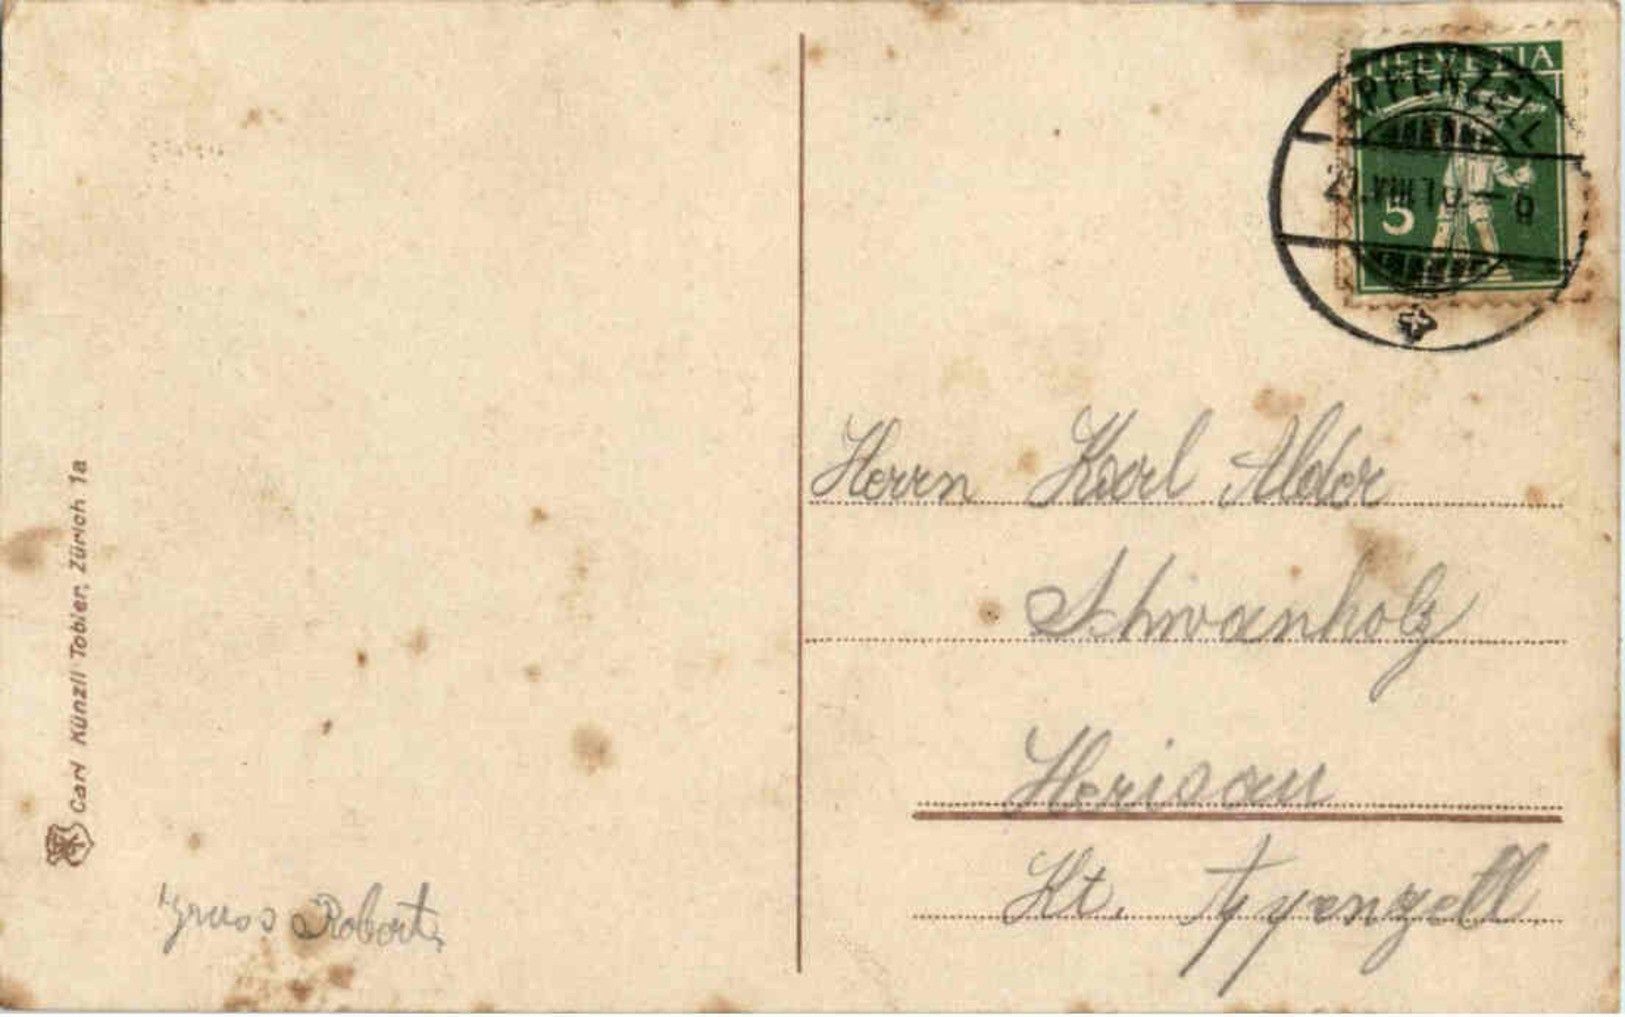 HELVETIA
APPENZELL
5
Herrn Karl Alder
Schwanholz
Herisau
Kt. Appenzell
Carl Künzli Tobler, Zürich 1a
Gruss Robert